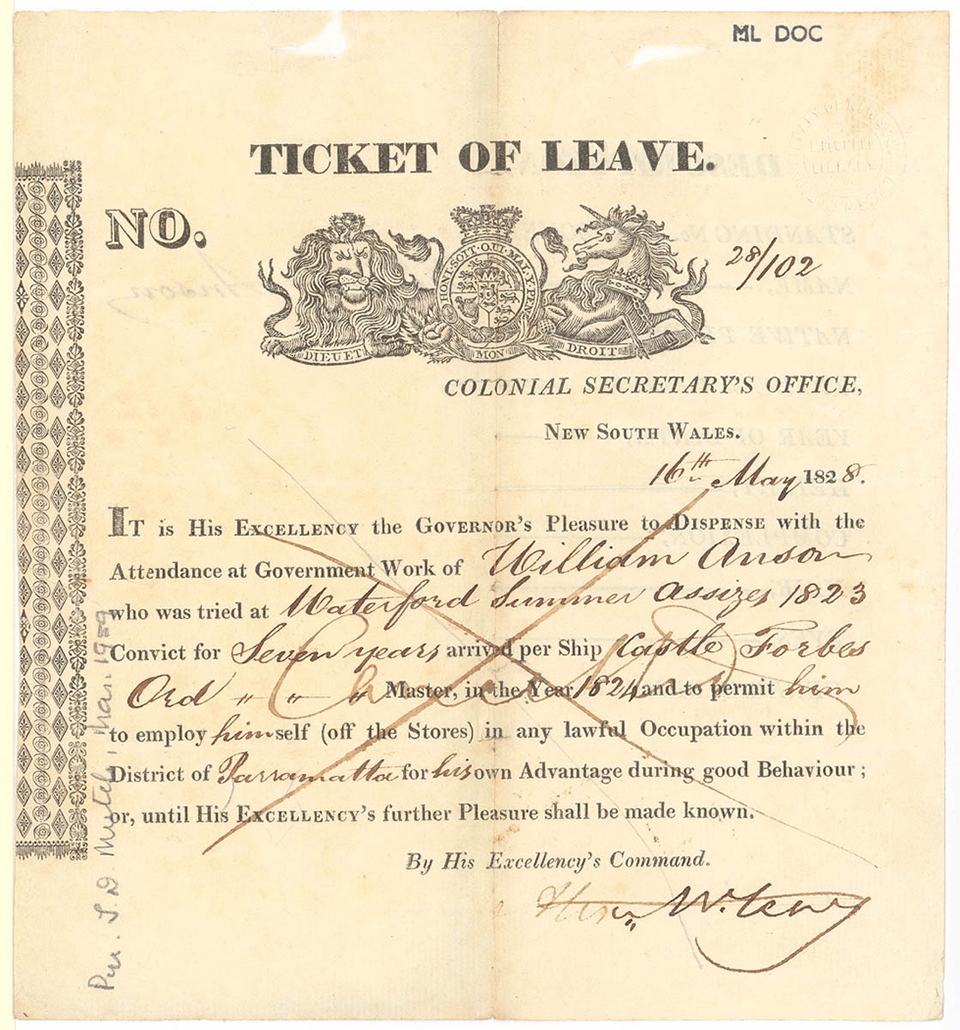 ML DOC
TICKET OF LEAVE.
NO.
28/102
HONI·SOIT·QUI·MAL·Y·PEN
DIEU ET MON DROIT
COLONIAL SECRETARY'S OFFICE,
NEW SOUTH WALES.
16th May 1828.
IT is His EXCELLENCY the GOVERNOR'S Pleasure to DISPENSE with the
Attendance at Government Work of William Anson
who was tried at Waterford Summer Assizes 1823
Convict for Seven years arrived per Ship Castle Forbes
Ord " " " Master, in the Year 1824 and to permit him
to employ himself (off the Stores) in any lawful Occupation within the
District of Parramatta for his own Advantage during good Behaviour;
or, until His EXCELLENCY'S further Pleasure shall be made known.
By His Excellency's Command.